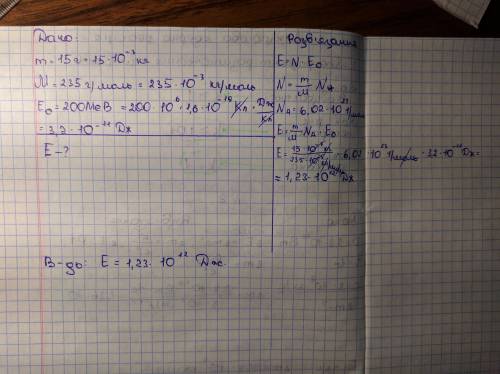 Дано:
m = 15 г = 15 · 10⁻³ кг
M = 235 г/моль = 235 · 10⁻³ кг/моль
E₀ = 200 МеВ = 200 · 10⁶ · 1,6 · 10⁻¹⁹ Кл · Дж/Кл
= 3,2 · 10⁻¹¹ Дж
E - ?
Розв'язання
E = N · E₀
N = m/M · Nₐ
Nₐ = 6,02 · 10²³ 1/моль
E = m/M · Nₐ · E₀
E = 15 · 10⁻³ кг / 235 · 10⁻³ кг/моль · 6,02 · 10²³ 1/моль · 3,2 · 10⁻¹¹ Дж =
= 1,23 · 10¹² Дж
В-дь: E = 1,23 · 10¹² Дж.